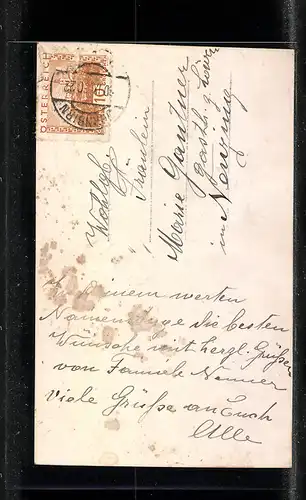 ÖSTERREICH
Wohlgeb.
Fräulein
Marie Gantner
in Nenzing
Zu Deinem werten
Namenstage die besten
Wünsche mit herzl. Grüßen
von Familie Nenner
viele Grüße an Euch
Alle